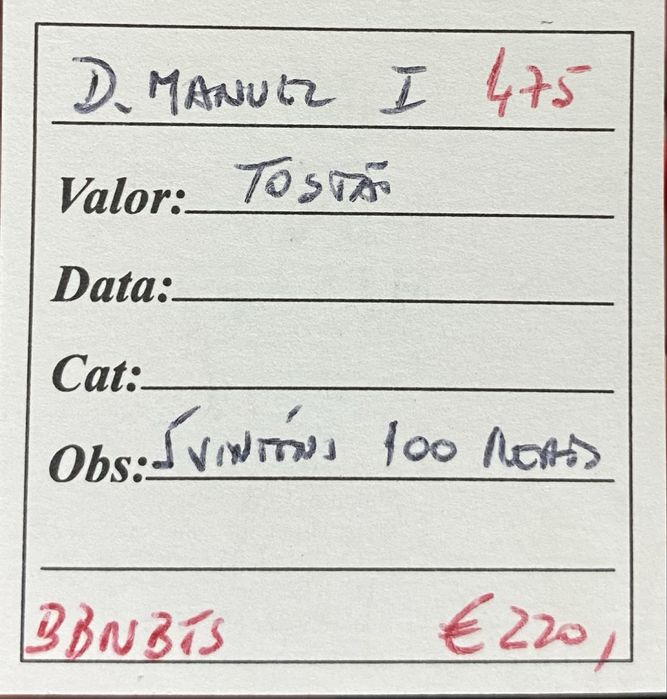 D. MANUEL I 475
Valor: TOSTÃO
Data:
Cat:
Obs: 5 VINTÉNS 100 REAIS
BBNBTS €220,